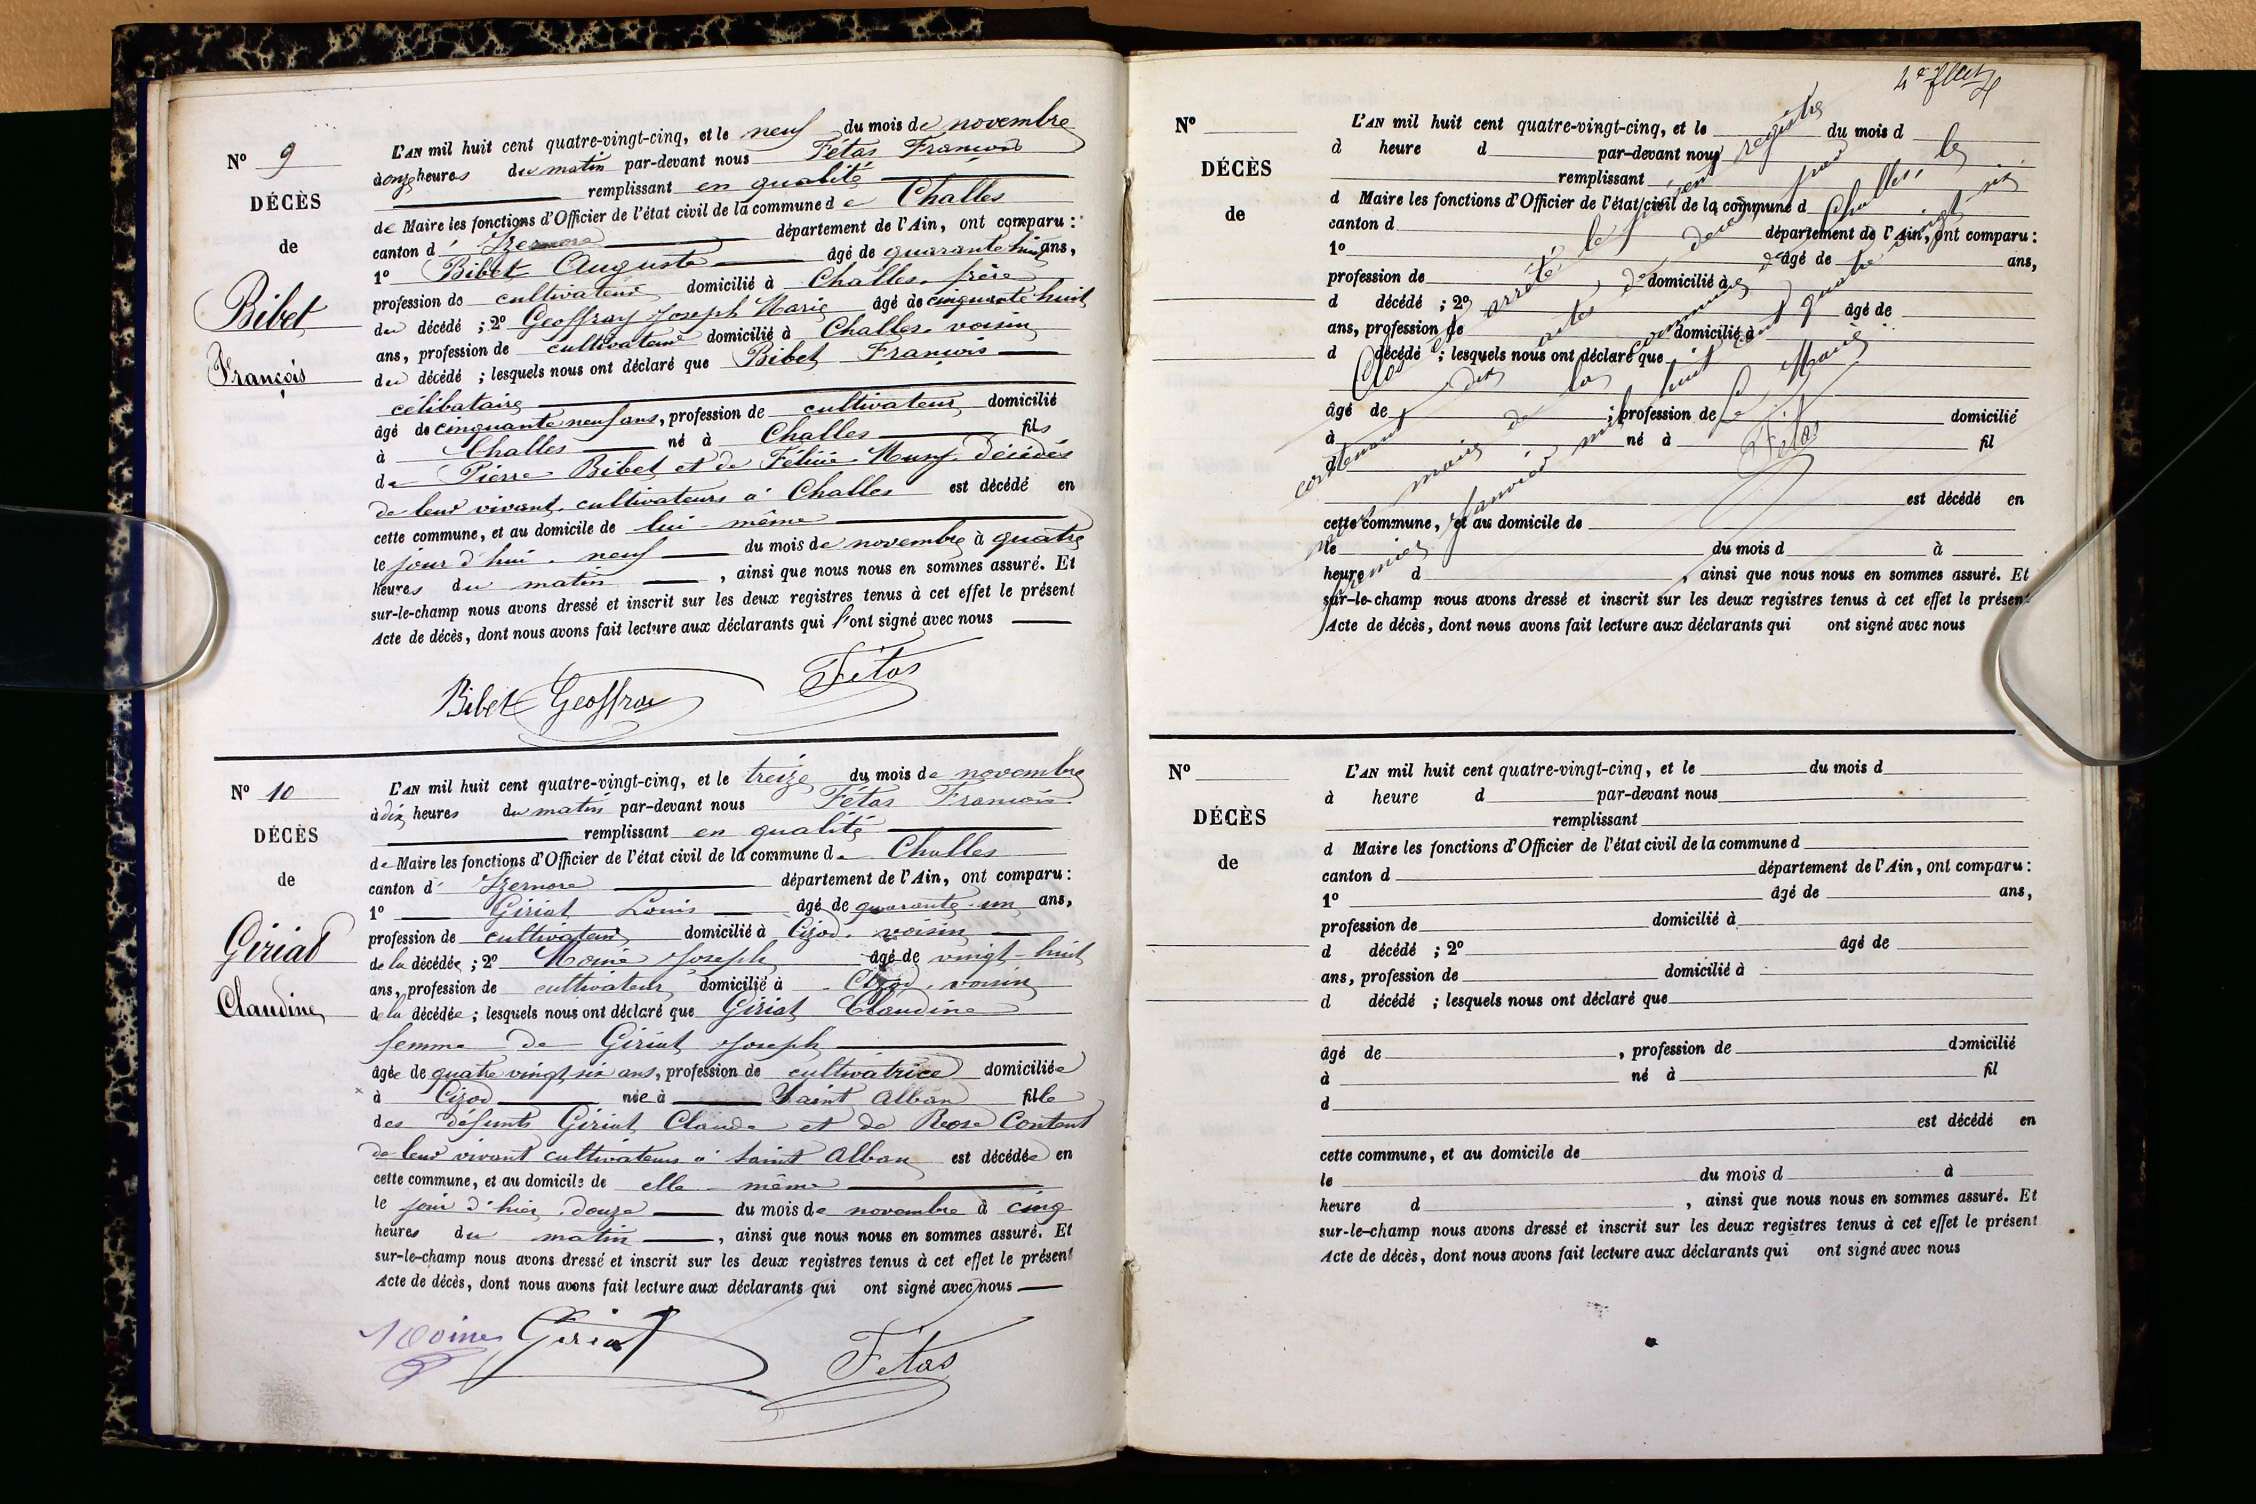 N° 9
DÉCÈS
de
Bibet
François
L'AN mil huit cent quatre-vingt-cinq, et le neuf du mois de novembre
à onze heures du matin par-devant nous Fétas François
remplissant en qualité
de Maire les fonctions d'Officier de l'état civil de la commune de Challes
canton d' Izernore département de l'Ain, ont comparu :
1° Bibet Auguste âgé de quarante huit ans,
profession de cultivateur domicilié à Challes, frère
du décédé ; 2° Geoffray Joseph Marie âgé de cinquante huit
ans, profession de cultivateur domicilié à Challes, voisin
du décédé ; lesquels nous ont déclaré que Bibet François
célibataire
âgé de cinquante neuf ans, profession de cultivateur domicilié
à Challes né à Challes fils
de Pierre Bibet et de Félicie décédés
de leur vivant, cultivateurs à Challes est décédé en
cette commune, et au domicile de lui-même
le jour d'hui neuf du mois de novembre à quatre
heures du matin, ainsi que nous nous en sommes assuré. Et
sur-le-champ nous avons dressé et inscrit sur les deux registres tenus à cet effet le présent
Acte de décès, dont nous avons fait lecture aux déclarants qui l'ont signé avec nous
Bibet Geoffray Fétas
N° 10
DÉCÈS
de
Giriat
Claudine
L'AN mil huit cent quatre-vingt-cinq, et le treize du mois de novembre
à dix heures du matin par-devant nous Fétas François
remplissant en qualité
de Maire les fonctions d'Officier de l'état civil de la commune de Challes
canton d' Izernore département de l'Ain, ont comparu :
1° Giriat Louis âgé de quarante-un ans,
profession de cultivateur domicilié à Cizod, voisin
de la décédée ; 2° Moine Joseph âgé de vingt-huit
ans, profession de cultivateur domicilié à Cizod, voisin
de la décédée ; lesquels nous ont déclaré que Giriat Claudine
femme de Giriat Joseph
âgée de quatre vingt six ans, profession de cultivatrice domiciliée
à Cizod née à Saint Alban fille
des défunts Giriat Claude et de Rose Content
de leur vivant cultivateurs à Saint Alban est décédée en
cette commune, et au domicile de elle-même
le jour d'hier, douze du mois de novembre à cinq
heures du matin, ainsi que nous nous en sommes assuré. Et
sur-le-champ nous avons dressé et inscrit sur les deux registres tenus à cet effet le présent
Acte de décès, dont nous avons fait lecture aux déclarants qui ont signé avec nous
Moine Giriat Fétas
N°
DÉCÈS
de
L'AN mil huit cent quatre-vingt-cinq, et le du mois d
à heure d par-devant nous
remplissant
d Maire les fonctions d'Officier de l'état civil de la commune d
canton d département de l'Ain, ont comparu :
1° âgé de ans,
profession de domicilié à
d décédé ; 2° âgé de
ans, profession de domicilié à
d décédé ; lesquels nous ont déclaré que
âgé de , profession de domicilié
à né à fil
d
est décédé en
cette commune, et au domicile de
le du mois d à
heure d , ainsi que nous nous en sommes assuré. Et
sur-le-champ nous avons dressé et inscrit sur les deux registres tenus à cet effet le présent
Acte de décès, dont nous avons fait lecture aux déclarants qui ont signé avec nous
Clos et arrêté le présent registre
contenant dix actes de décès par
nous maire de la commune de Challes, le
premier janvier mil huit cent quatre vingt six
Le Maire
Fétas
N°
DÉCÈS
de
L'AN mil huit cent quatre-vingt-cinq, et le du mois d
à heure d par-devant nous
remplissant
d Maire les fonctions d'Officier de l'état civil de la commune d
canton d département de l'Ain, ont comparu :
1° âgé de ans,
profession de domicilié à
d décédé ; 2° âgé de
ans, profession de domicilié à
d décédé ; lesquels nous ont déclaré que
âgé de , profession de domicilié
à né à fil
d
est décédé en
cette commune, et au domicile de
le du mois d à
heure d , ainsi que nous nous en sommes assuré. Et
sur-le-champ nous avons dressé et inscrit sur les deux registres tenus à cet effet le présent
Acte de décès, dont nous avons fait lecture aux déclarants qui ont signé avec nous